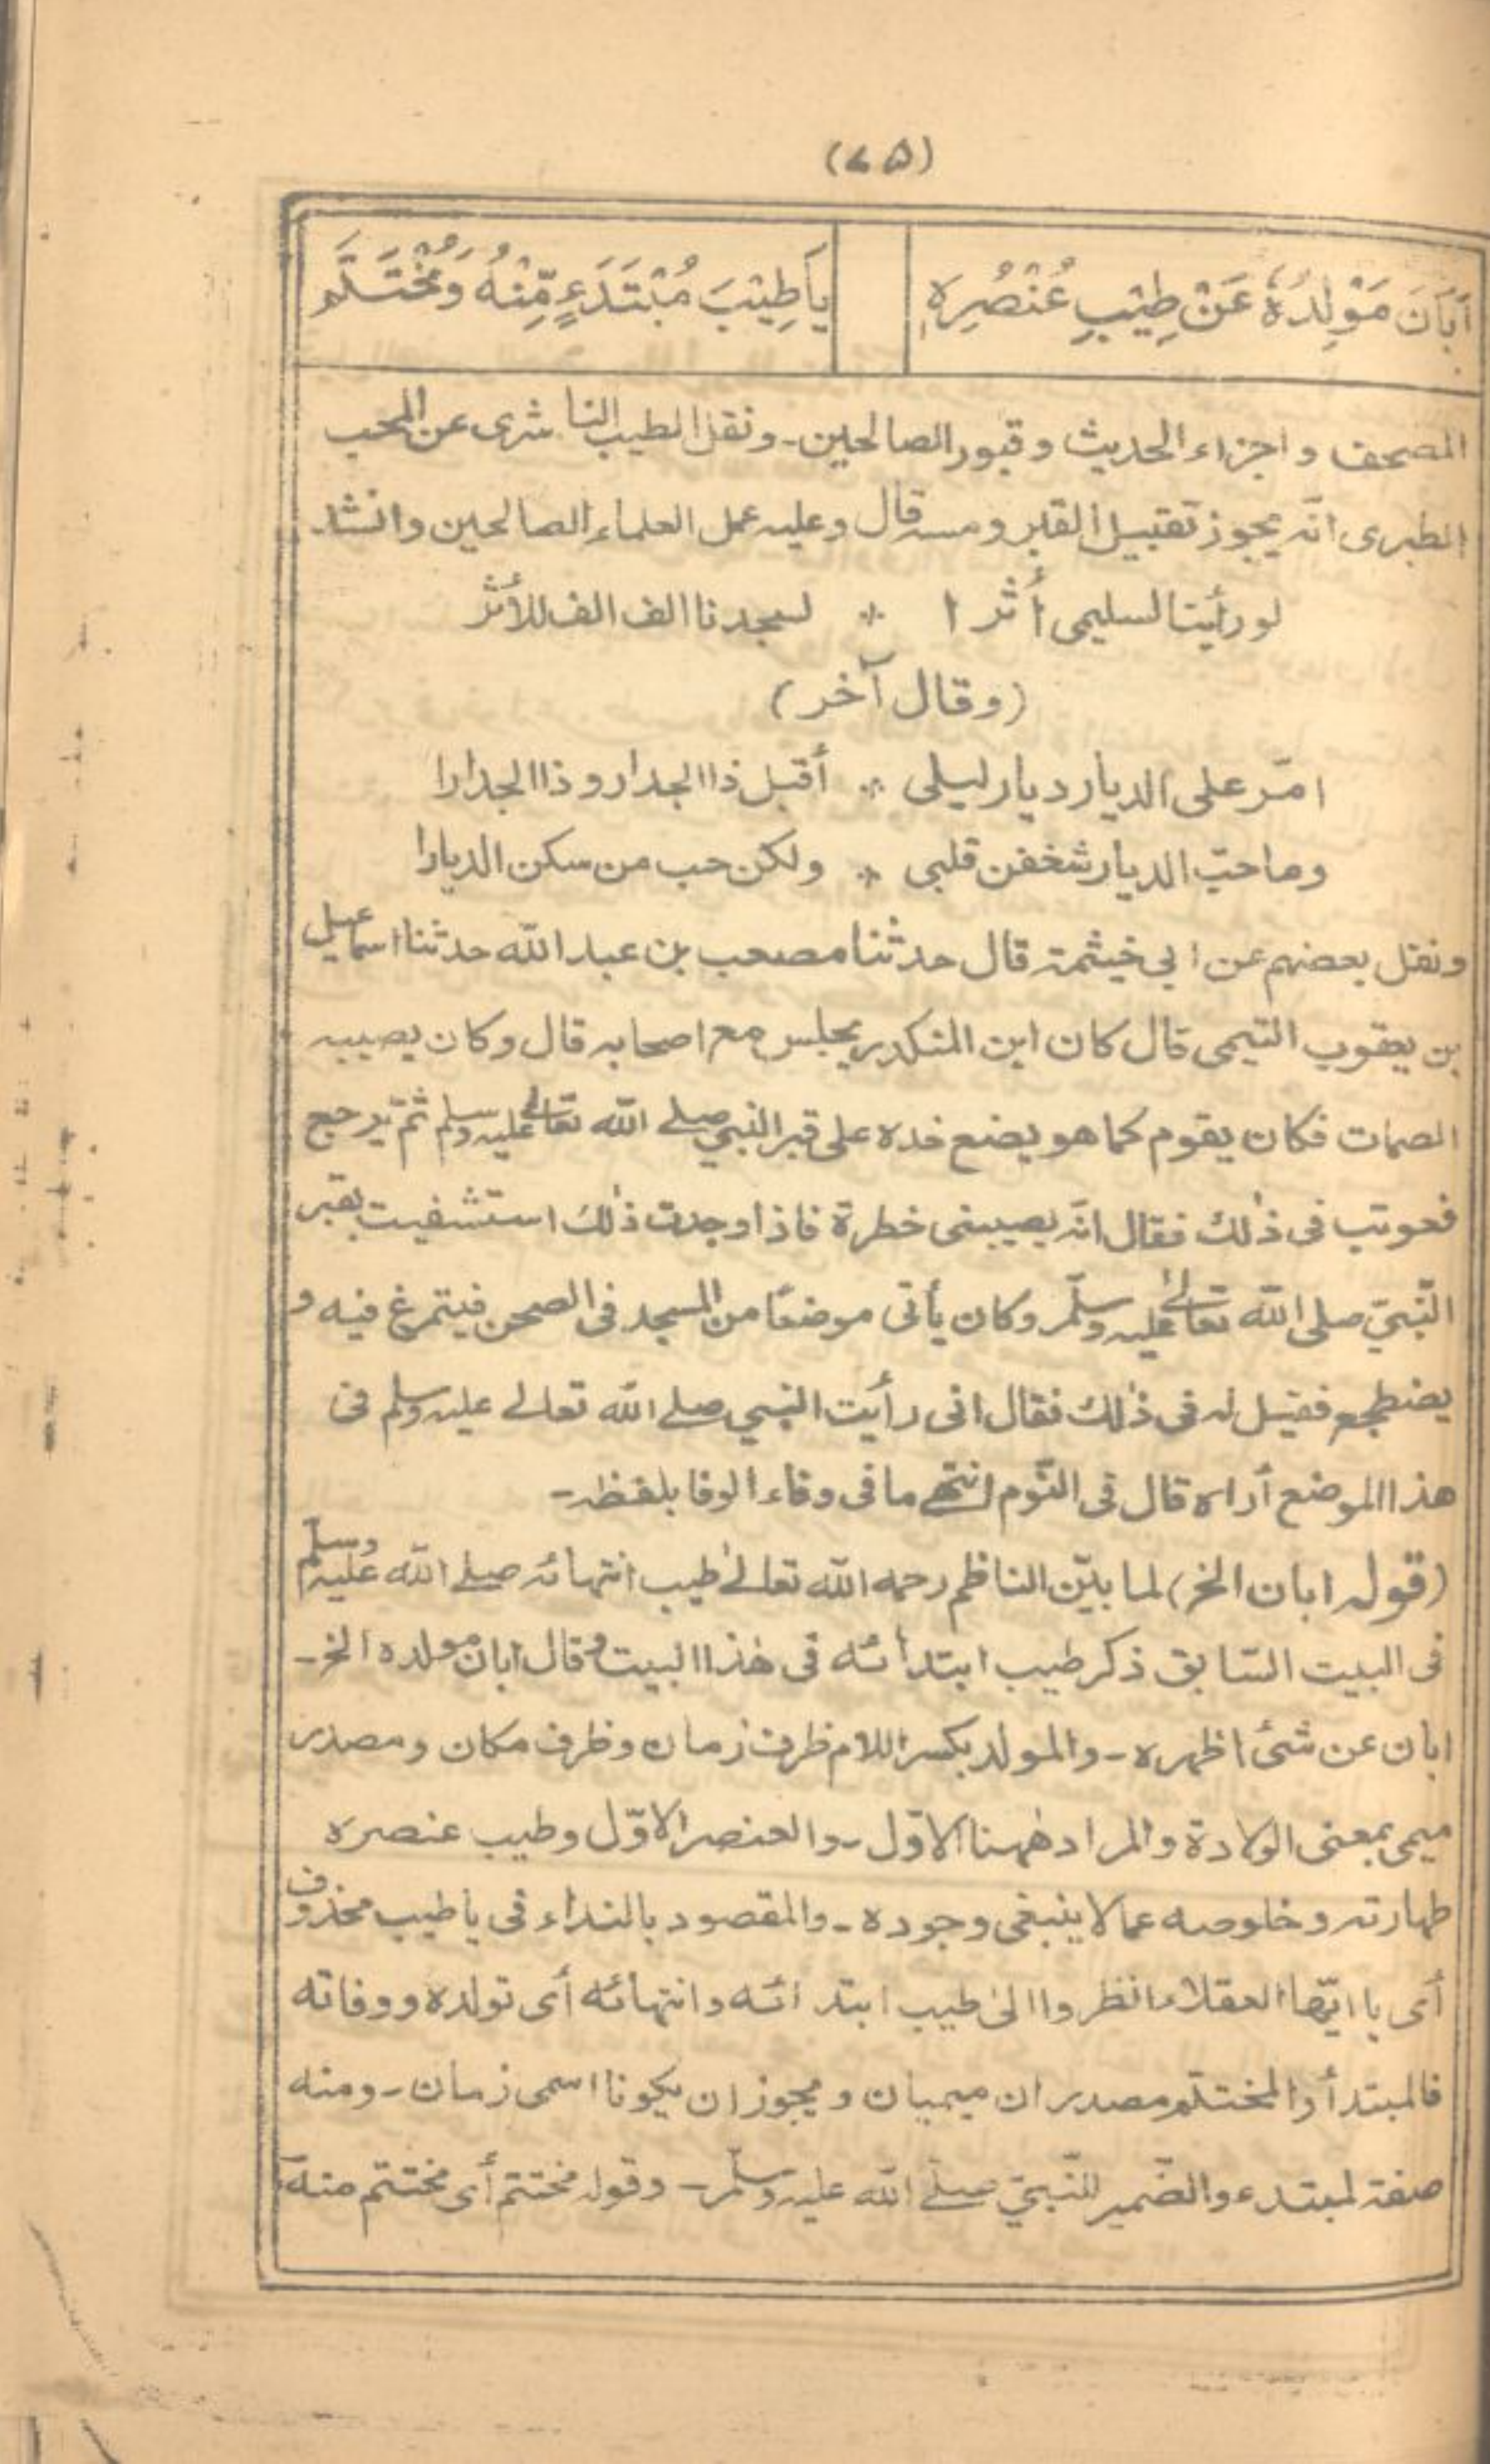 (۷۵)
اَبَانَ مَوْلِدُهٗ عَنْ طِيْبِ عُنْصُرِهٖ يَا طِيْبَ مُبْتَدَءٍ مِّنْهُ وَمُخْتَتَمٖ
المصحف و اجزاء الحديث و قبور الصالحين۔ ونقل الطيب الناشری عن المحب
الطبری انّہ يجوز تقبيل القبر ومسہ قال وعليہ عمل العلماء الصالحين وانشد
لو رأينا لسليمی أثرا * لسجدنا الف الف للأثر
(وقال آخر)
امّر علی الديار ديار ليلی * أقبل ذا الجدار و ذا الجدارا
وما حبّ الديار شغفن قلبی * ولكن حب من سكن الديارا
ونقل بعضهم عن ابی خيثمة قال حدثنا مصعب بن عبد الله حدثنا اسماعيل
بن يعقوب التيمی قال كان ابن المنكدر يجلس مع اصحابہ قال وكان يصيبہ
الصمات فكان يقوم كما هو يضع خدہ علی قبر النبی صلے الله تعالےٰ عليہ وسلم ثمّ يرجع
فعوتب فی ذٰلك فقال انّہ يصيبنی خطرة فاذا وجدت ذٰلك استشفيت بقبر
النّبیّ صلی الله تعالےٰ عليہ وسلّم وكان يأتی موضعًا من المسجد فی الصحن فيتمرغ فيه و
يضطجع فقيل لہ فی ذٰلك فقال انی رأيت النبی صلے الله تعالے عليہ وسلم فی
هذا الموضع أراہ قال فی النّوم انتہےٰ ما فی وفاء الوفا بلفظہ۔
(قولہ ابان الخ) لما بيّن الناظم رحمه الله تعالےٰ طيب انتهائہ صلے الله عليہ وسلم
فی البيت السّابق ذكر طيب ابتدائه فی هٰذا البيت وقال ابان مولده الخ۔
ابان عن شئ اظهره۔ والمولد بكسر اللام ظرف زمان وظرف مكان ومصدر
ميمی بمعنی الولادة والمراد هٰهنا الاوّل۔ والعنصر الاوّل وطيب عنصرہ
طهارتہ وخلوصہ عما لا ينبغی وجودہ۔ والمقصود بالنداء فی يا طيب محذوف
أی يا ايّها العقلاء انظروا الیٰ طيب ابتدائه وانتهائه أی تولده ووفاته
فالمبتدأ والمختتم مصدران ميميان ويجوز ان يكونا اسمی زمان۔ ومنه
صفة لمبتدء والضّمير للنّبیّ صلّے الله عليہ وسلّم۔ وقولہ مختتم أی مختتم منه